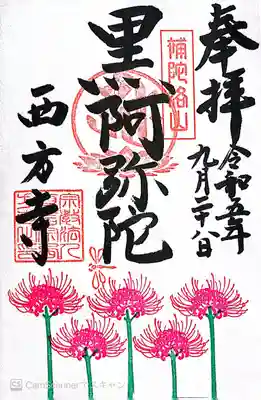 奉拝
令和五年
九月二十八日
補陀洛山
黒阿弥陀
西方寺
CS CamScanner でスキャン